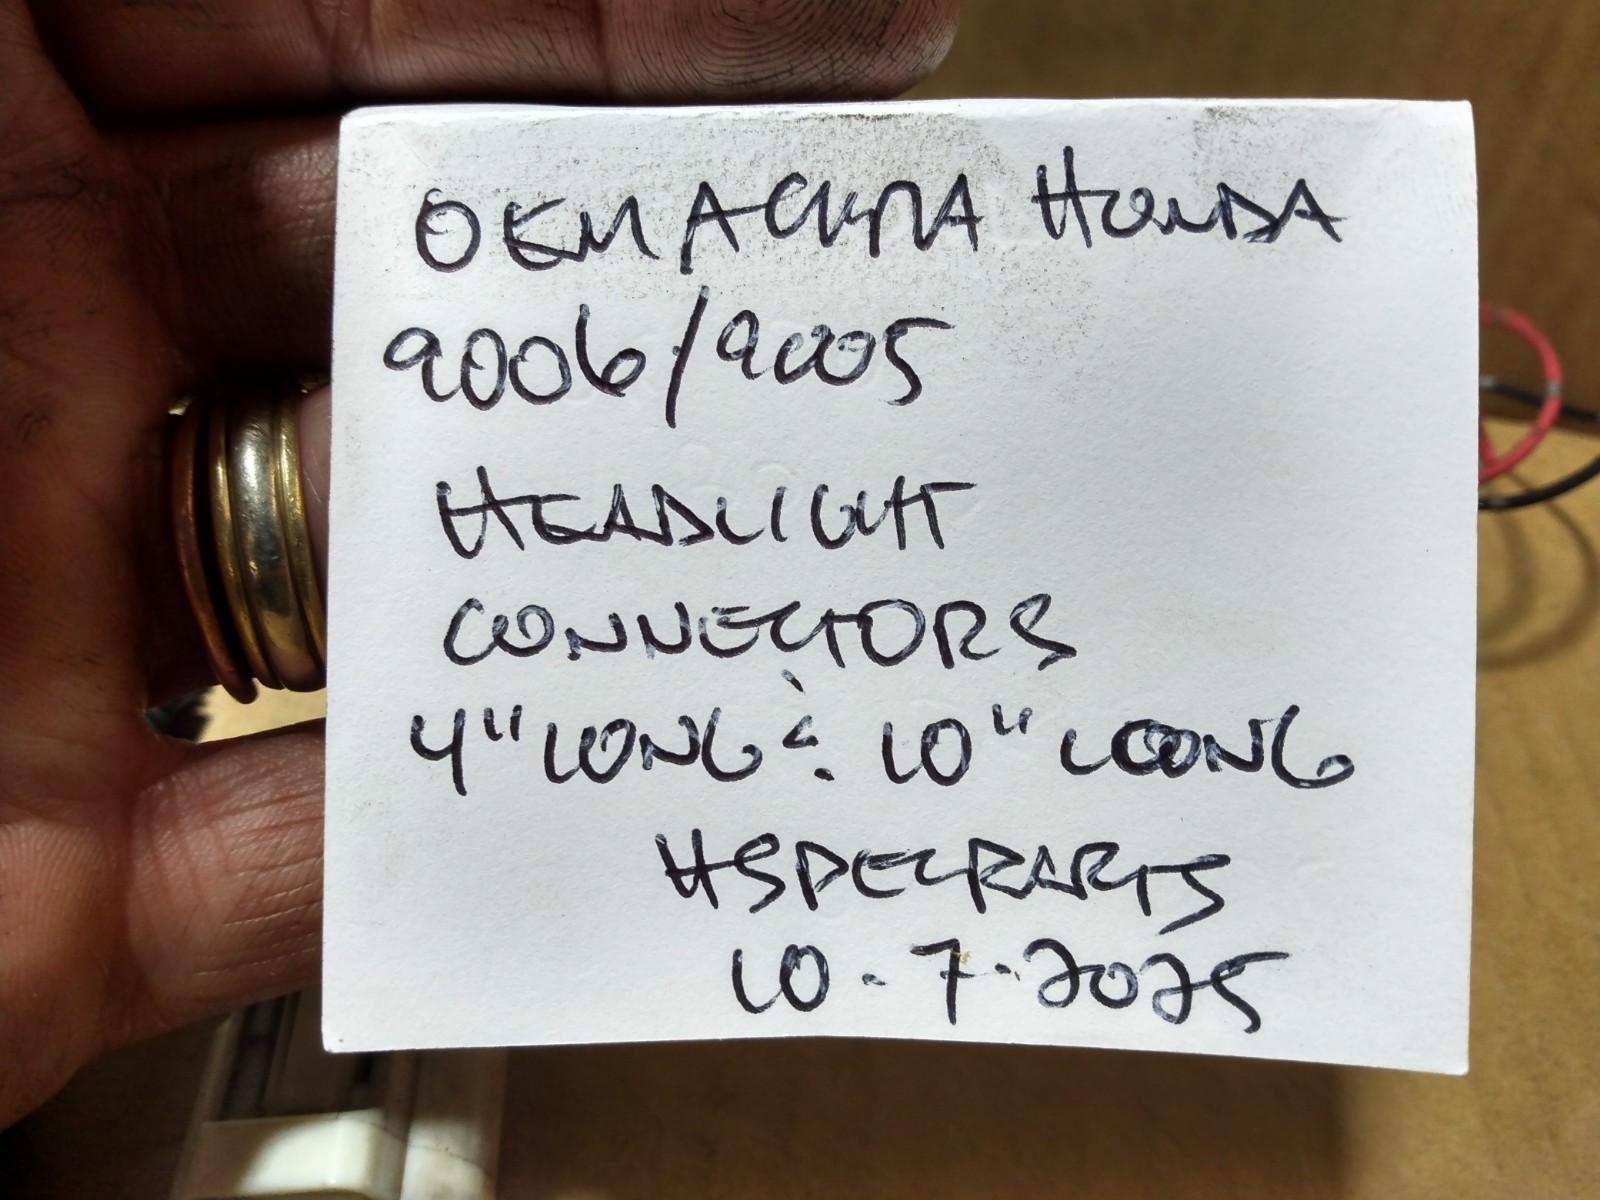 OEM ACURA HONDA
9006/9005
HEADLIGHT
CONNECTORS
4" LONG & 10" LOONG
HSPECPARTS
10.7.2025